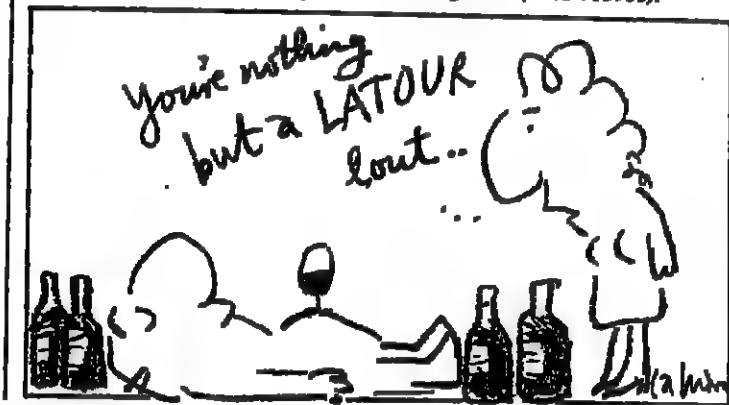 You're nothing
but a LATOUR
lout..
...